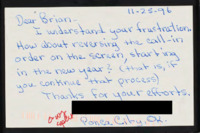 11-25-96
Dear Brian-
I understand your frustration.
How about reversing the call-in
order on the screen, starting
in the new year? (that is, if
you continue that process)
Thanks for your efforts.
Ponca City, Ok.